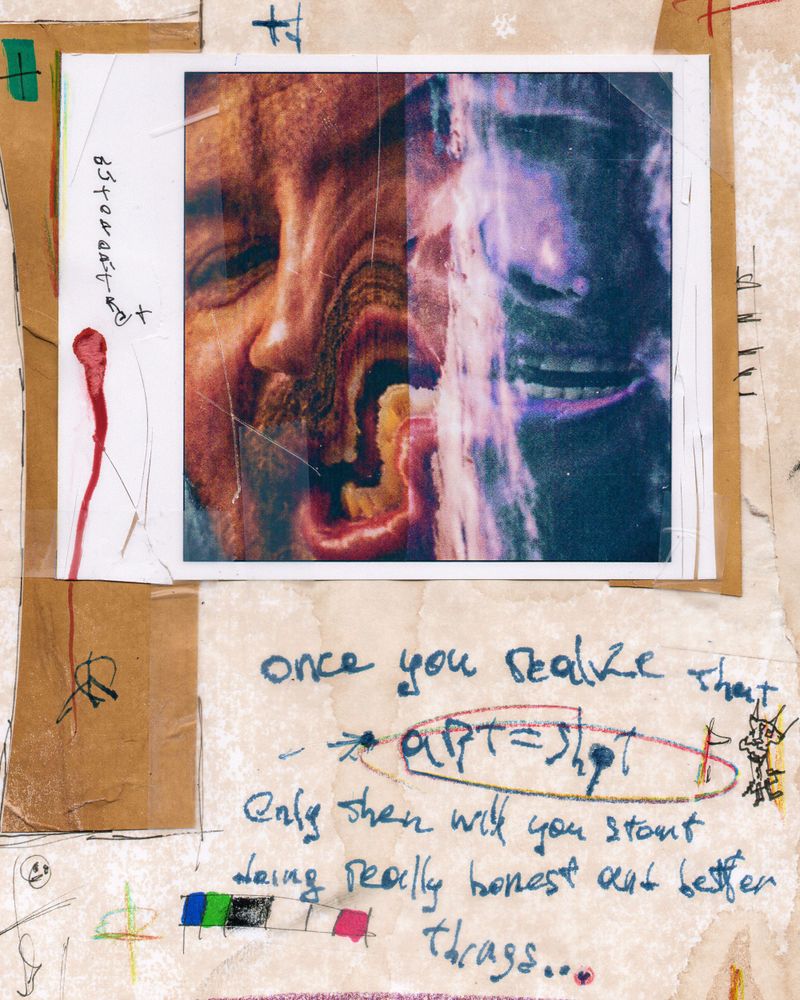 once you realize that
art=shit
Only then will you start
doing really honest and better
things...